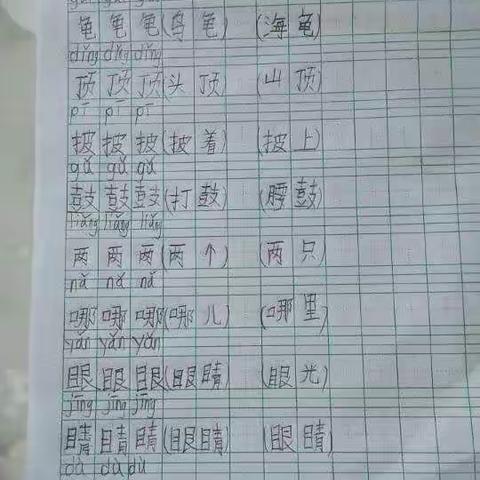 龟 龟 龟(乌龟) (海龟)
dǐng dǐng dǐng
顶 顶 顶(头顶) (山顶)
pī pī pī
披 披 披(披着) (披上)
gǔ gǔ gǔ
鼓 鼓 鼓(打鼓) (腰鼓)
liǎng liǎng liǎng
两 两 两(两个) (两只)
nǎ nǎ nǎ
哪 哪 哪(哪儿) (哪里)
yǎn yǎn yǎn
眼 眼 眼(眼睛) (眼光)
jīng jīng jīng
睛 睛 睛(眼睛) (眼睛)
dù dù dù